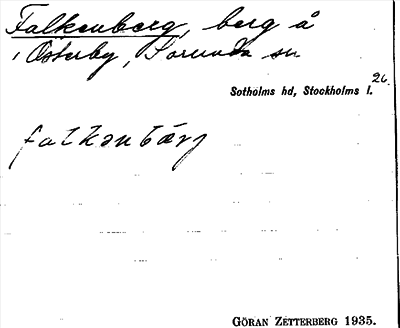 Falkenberg, berg å
i Österby, Sorunda sn
26.
Sotholms hd, Stockholms l.
falkənbärj
GÖRAN ZETTERBERG 1935.